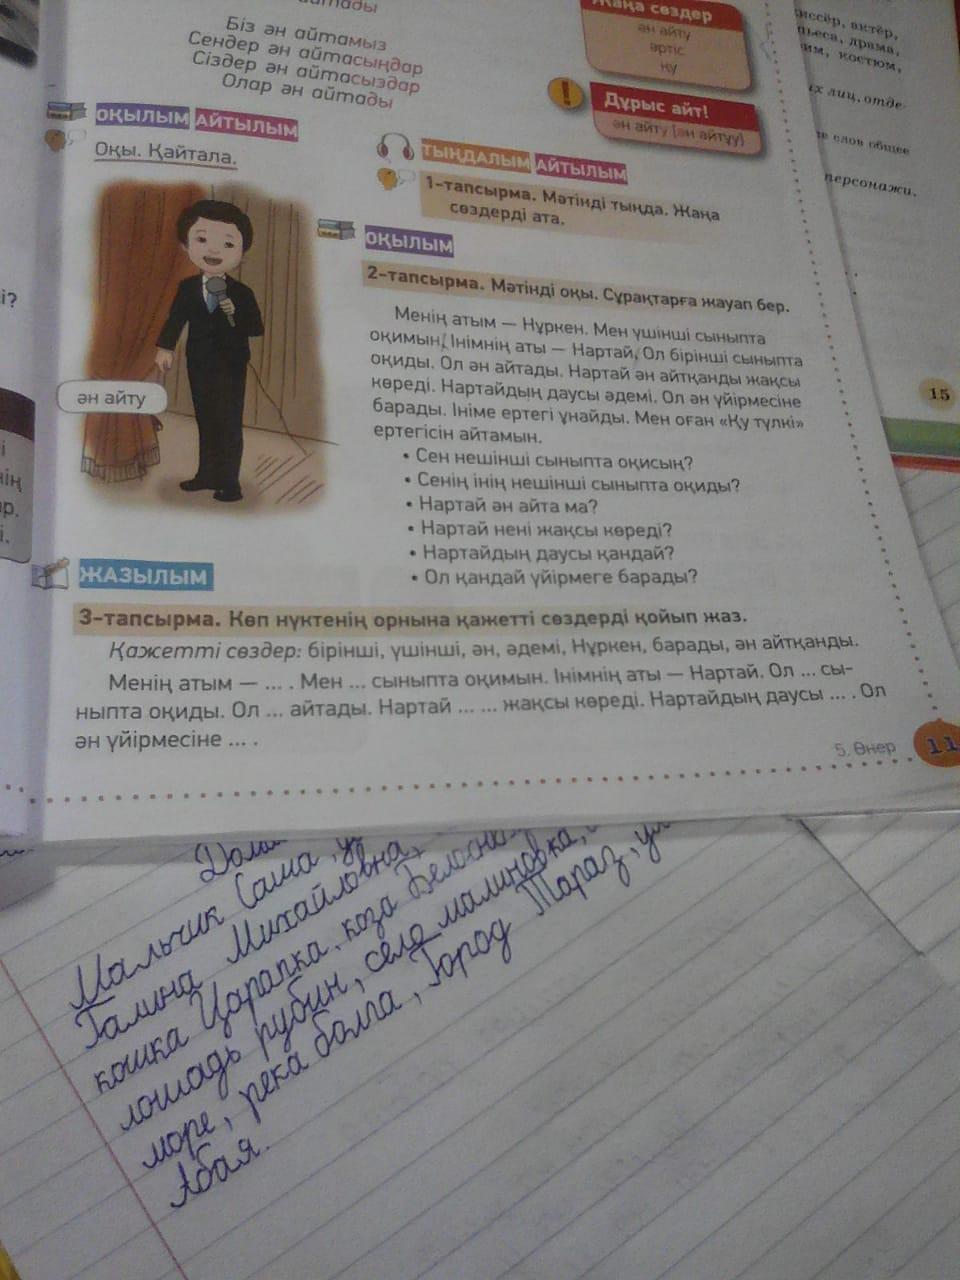 Біз ән айтамыз
Сендер ән айтасыңдар
Сіздер ән айтасыздар
Олар ән айтады
Жаңа сөздер
ән айту
әртіс
ку
Дұрыс айт!
ән айту [ән айтуу]
ОҚЫЛЫМ АЙТЫЛЫМ
Оқы. Қайтала.
ТЫҢДАЛЫМ АЙТЫЛЫМ
1-тапсырма. Мәтінді тыңда. Жаңа
сөздерді ата.
ОҚЫЛЫМ
2-тапсырма. Мәтінді оқы. Сұрақтарға жауап бер.
Менің атым — Нұркен. Мен үшінші сыныпта
оқимын. Інімнің аты — Нартай. Ол бірінші сыныпта
оқиды. Ол ән айтады. Нартай ән айтқанды жақсы
көреді. Нартайдың даусы әдемі. Ол ән үйірмесіне
барады. Ініме ертегі ұнайды. Мен оған «Қу түлкі»
ертегісін айтамын.
• Сен нешінші сыныпта оқисың?
• Сенің інің нешінші сыныпта оқиды?
• Нартай ән айта ма?
• Нартай нені жақсы көреді?
• Нартайдың даусы қандай?
• Ол қандай үйірмеге барады?
ән айту
ЖАЗЫЛЫМ
3-тапсырма. Көп нүктенің орнына қажетті сөздерді қойып жаз.
Қажетті сөздер: бірінші, үшінші, ән, әдемі, Нұркен, барады, ән айтқанды.
Менің атым — ... . Мен ... сыныпта оқимын. Інімнің аты — Нартай. Ол ... сы-
ныпта оқиды. Ол ... айтады. Нартай ... ... жақсы көреді. Нартайдың даусы ... . Ол
ән үйірмесіне ... .
5. Өнер
11
актёр,
драма,
костюм,
лиц, отде-
слов общее
персонажи.
15
Мальчик Саша,
Галина Михайловна,
кошка Царапка, коза
лошадь рубин, село малиновка,
море, река болга, Город Тараз,
Абая.